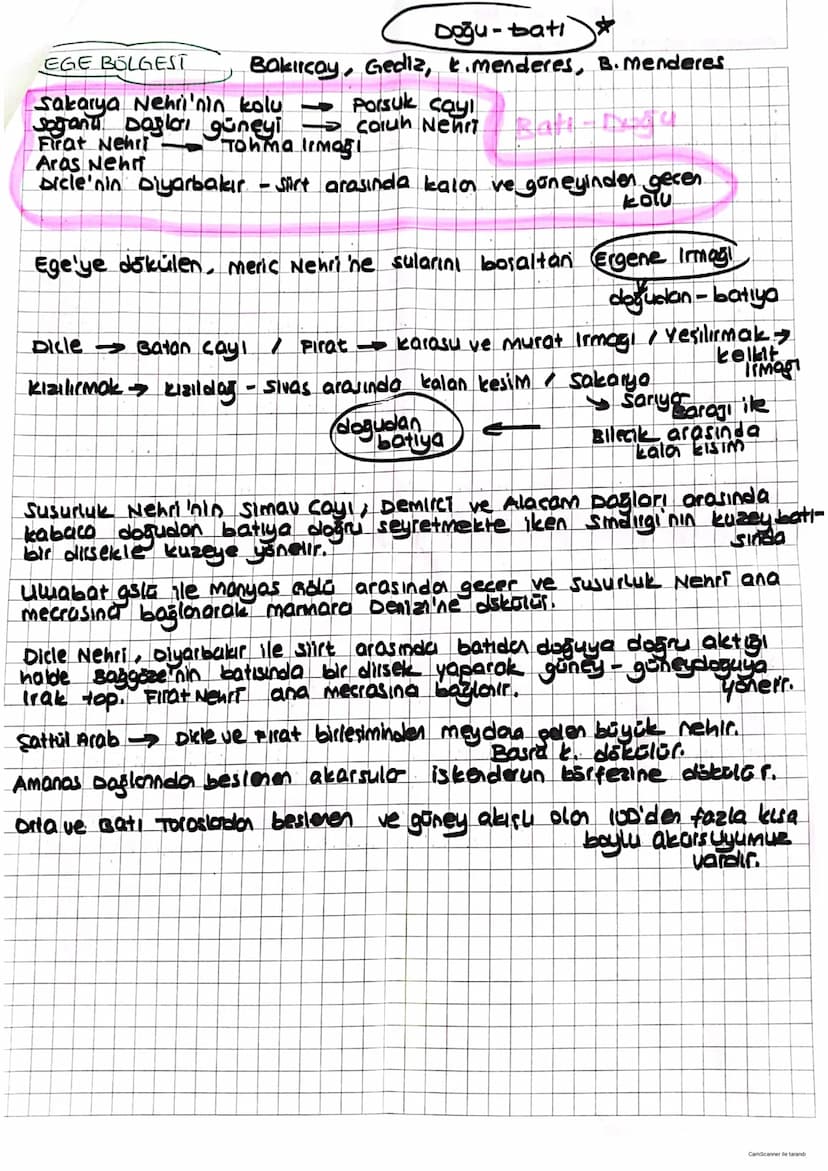 Doğu - batı *
EGE BÖLGESİ Bakırçay, Gediz, K.menderes, B. Menderes
Sakarya Nehri'nin kolu → Porsuk Çayı
Soğanlı Dağları güneyi → Çoruh Nehri Batı - Doğu
Fırat Nehri → Tohma Irmağı
Aras Nehri
Dicle'nin Diyarbakır - Siirt arasında kalan ve güneyinden geçen
kolu
Ege'ye dökülen, Meriç Nehri'ne sularını boşaltan Ergene Irmağı
doğudan - batıya
Dicle → Batan Çayı / Fırat → Karasu ve Murat Irmağı / Yeşilırmak →
Kelkit
Irmağı
Kızılırmak → Kızıldağ - Sivas arasında kalan kesim / Sakarya
↘ Sarıyar
Barajı ile
doğudan batıya ← Bilecik arasında
kalan kısım
Susurluk Nehri'nin Simav Çayı, Demirci ve Alaçam Dağları arasında
kabaca doğudan batıya doğru seyretmekte iken Sındırgı'nın kuzeybatı-
sında
bir dirsekle kuzeye yönelir.
Uluabat Gölü ile Manyas Gölü arasında geçer ve Susurluk Nehri ana
mecrasına bağlanarak Marmara Denizi'ne dökülür.
Dicle Nehri, Diyarbakır ile Siirt arasında batıdan doğuya doğru aktığı
halde Bağgöze'nin batısında bir dirsek yaparak güney - güneydoğuya
yönelir.
Irak top. Fırat Nehri ana mecrasına bağlanır.
Şattül Arab → Dicle ve Fırat birleşiminden meydana gelen büyük nehir.
Basra k. dökülür.
Amanos Dağlarında beslenen akarsular İskenderun Körfezine dökülür.
Orta ve Batı Toroslardan beslenen ve güney akışlı olan 100'den fazla kısa
boylu akarsuyumuz
vardır.
CamScanner ile tarandı